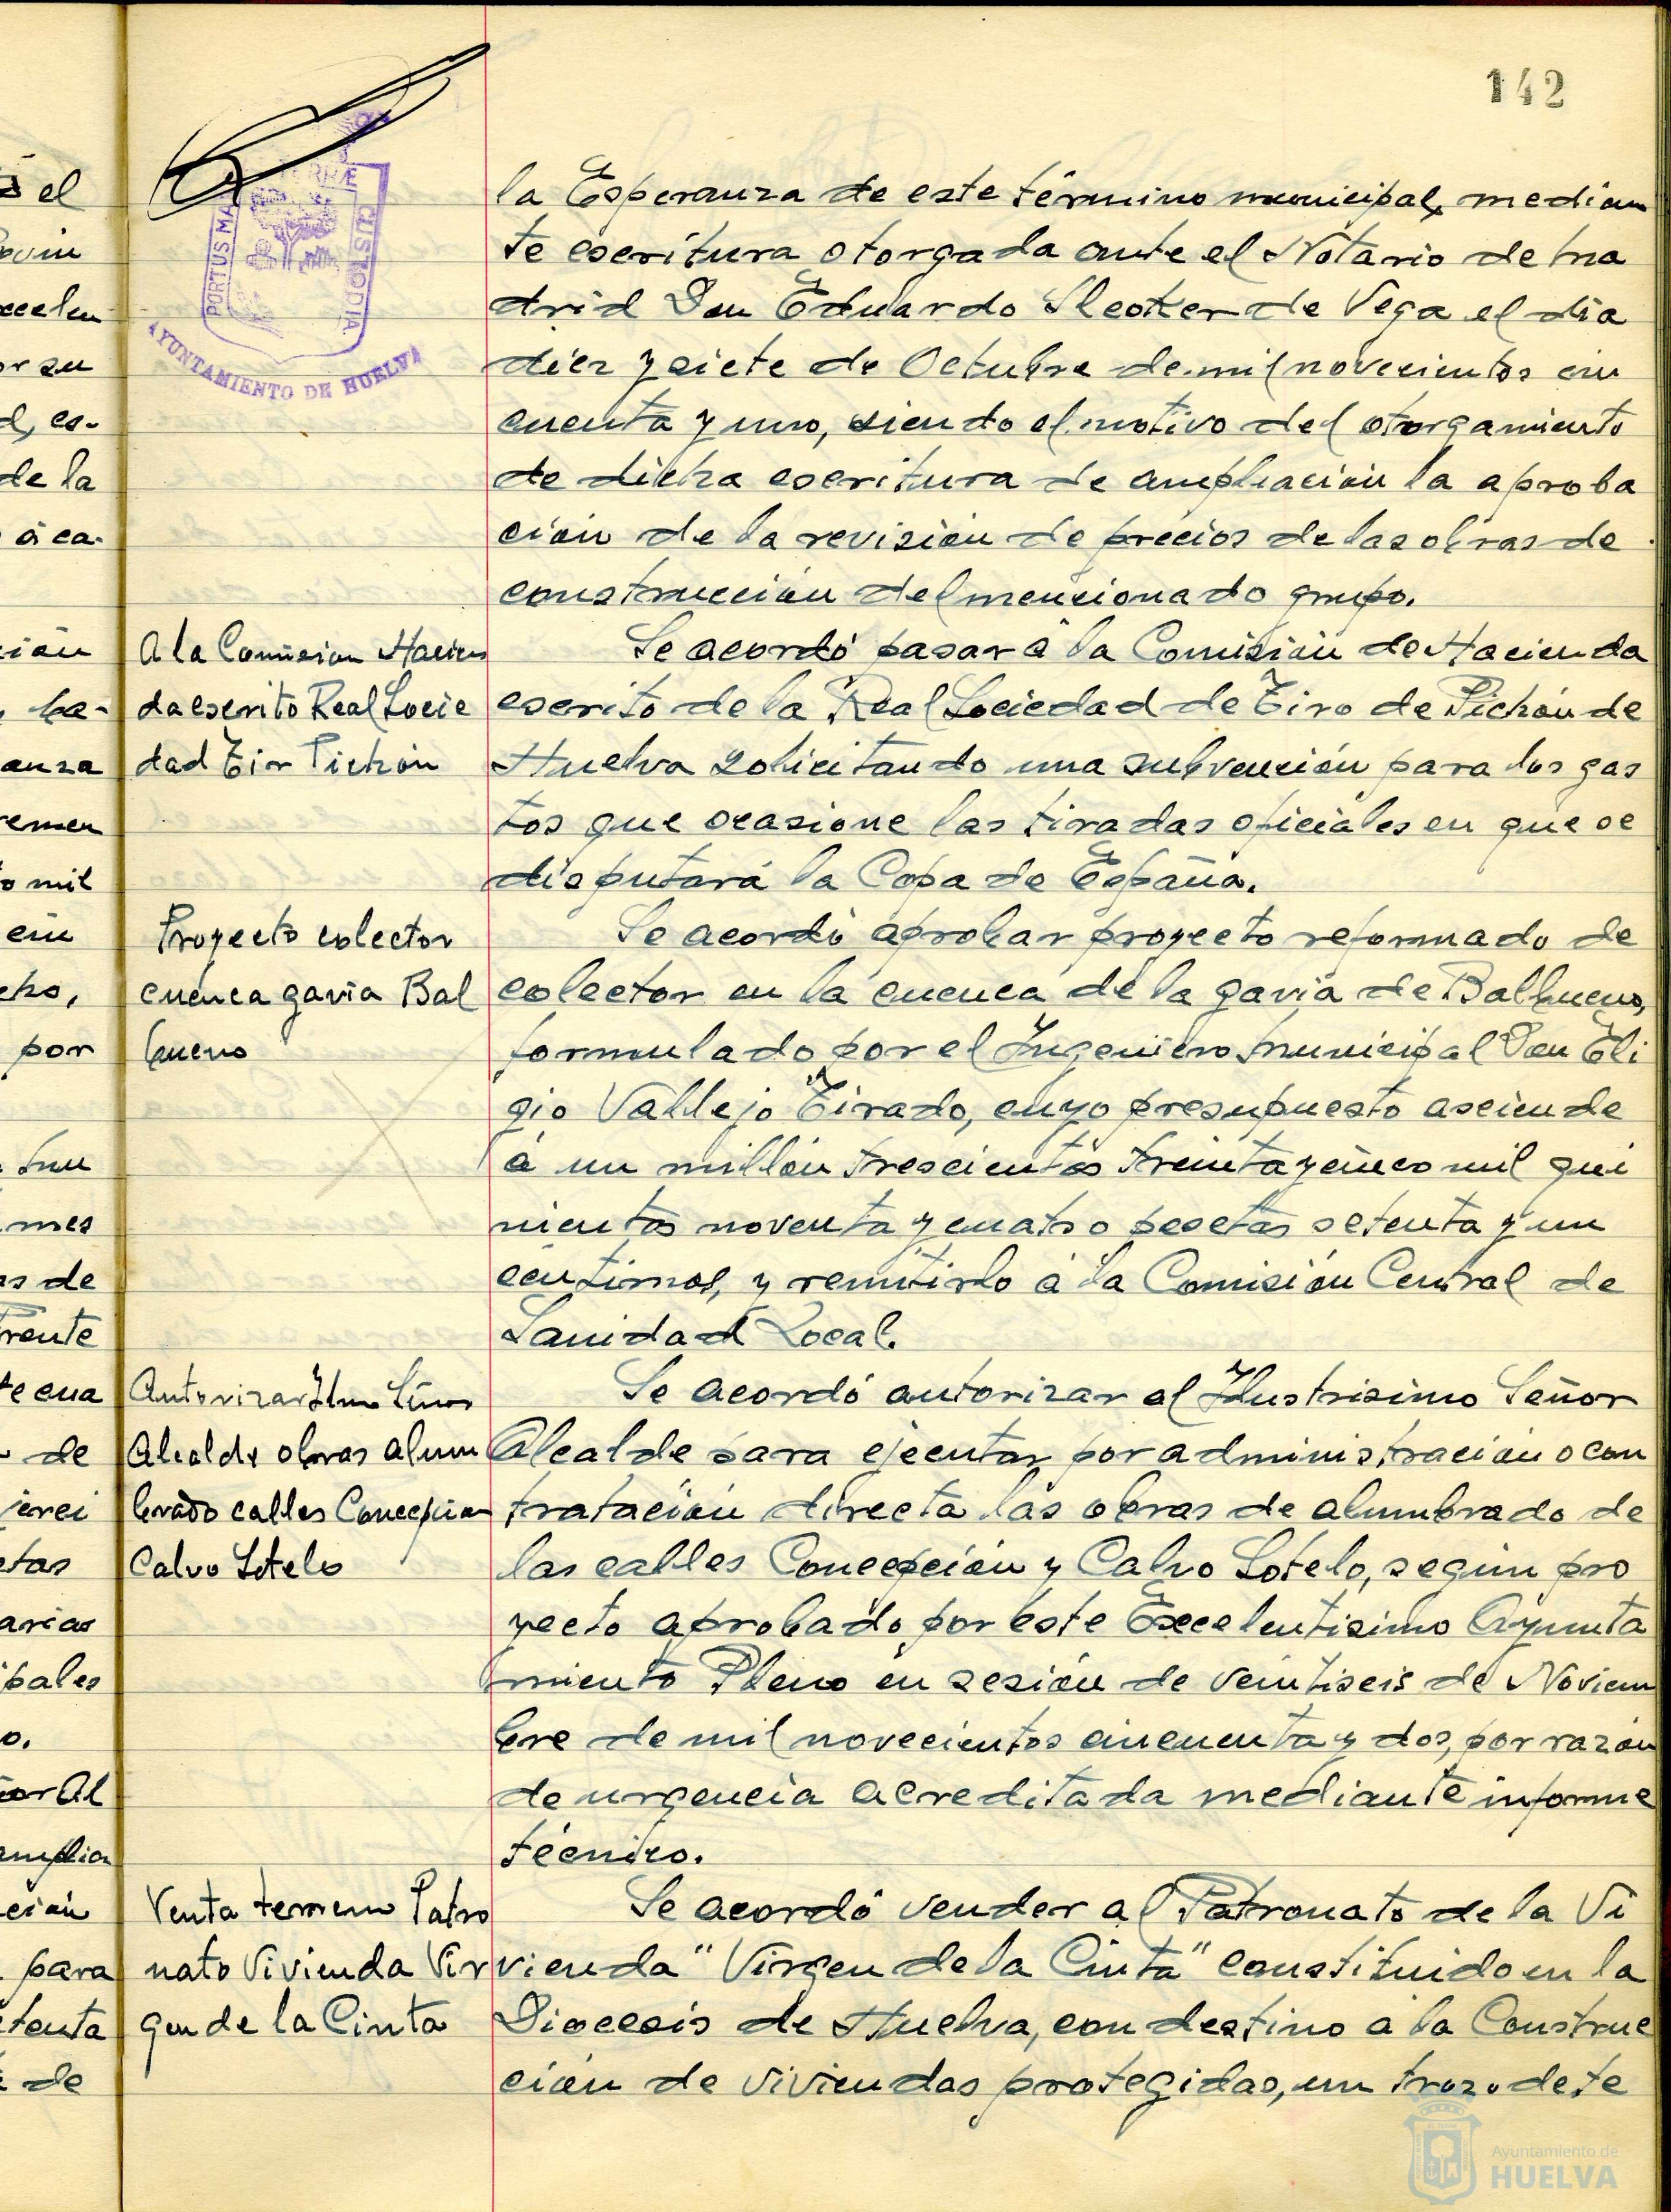 142
PORTUS MARIS
TERRÆ
CUSTODIA
AYUNTAMIENTO DE HUELVA
la Esperanza de este término municipal, median
te escritura otorgada ante el Notario de Ma
drid Don Eduardo de Vega el dia
diez y siete de Octubre de mil novecientos cin
cuenta y uno, siendo el motivo del otorgamiento
de dicha escritura de ampliación la aproba
ción de la revisión de precios de las obras de
construcción del mencionado grupo.
A la Comision Hacien
da escrito Real Socie
dad Tir Pichón
Se acordó pasar á la Comisión de Hacienda
escrito de la Real Sociedad de Tiro de Pichón de
Huelva solicitando una subvención para los gas
tos que ocasione las tiradas oficiales en que se
disputará la Copa de España.
Proyecto colector
cuenca gavia Bal
bueno
Se acordó aprobar proyecto reformado de
colector en la cuenca de la gavia de Balbueno,
formulado por el Ingeniero Municipal Don Eli
gio Vallejo Tirado, cuyo presupuesto asciende
á un millón trescientos treinta y cinco mil qui
nientas noventa y cuatro pesetas setenta y un
céntimos, y remitirlo á la Comisión Central de
Sanidad Local.
Autorizar Ilmo Señor
Alcalde obras alum
brado calles Concepción
Calvo Sotelo
Se acordó autorizar al Ilustrisimo Señor
Alcalde para ejecutar por administración o con
tratación directa las obras de alumbrado de
las calles Concepción y Calvo Sotelo, según pro
yecto aprobado por este Excelentisimo Ayunta
miento Pleno en sesión de veintiseis de Noviem
bre de mil novecientos cincuenta y dos, por razón
de urgencia acreditada mediante informe
técnico.
Venta terreno Patro
nato Vivienda Vir
gen de la Cinta
Se acordó vender al Patronato de la Vi
vienda "Virgen de la Cinta" constituido en la
Diocesis de Huelva, con destino a la Construc
ción de viviendas protegidas, un trozo de te
Ayuntamiento de
HUELVA